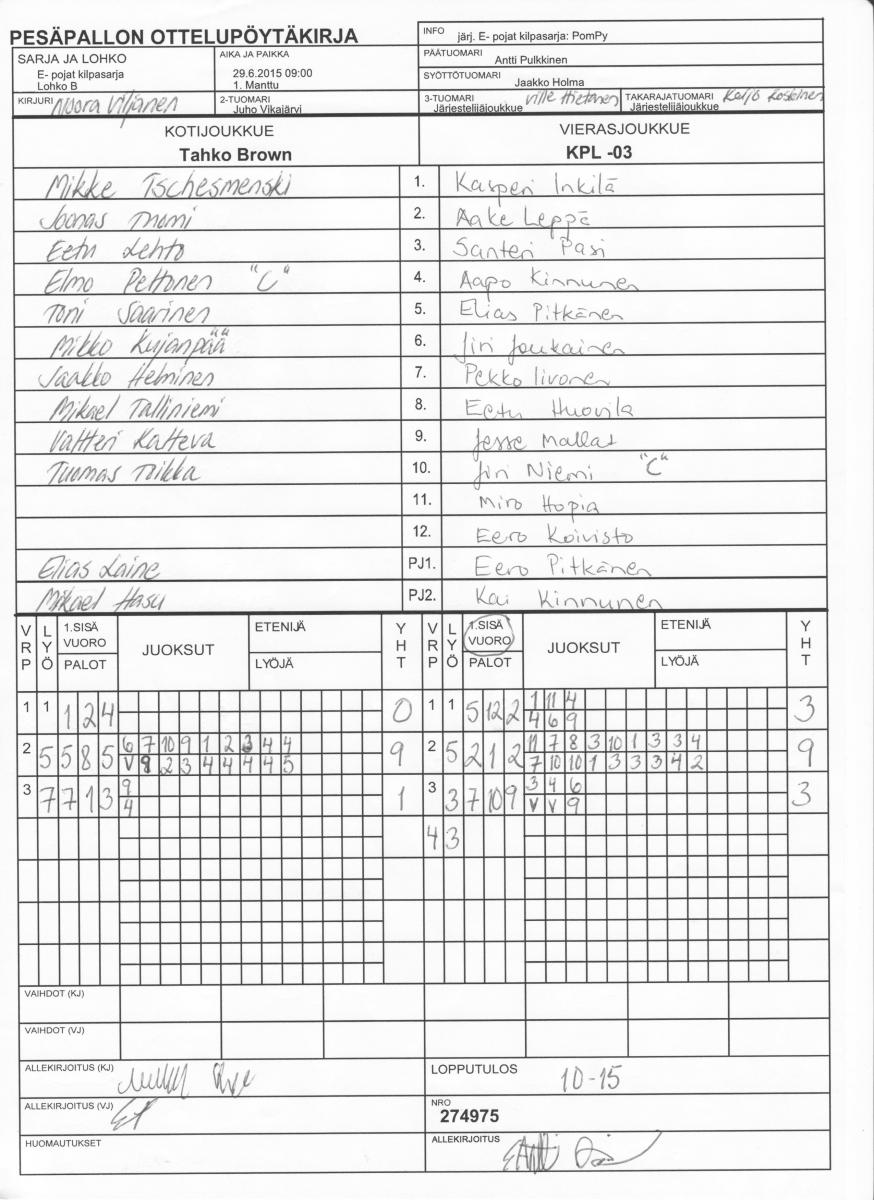 PESÄPALLON OTTELUPÖYTÄKIRJA
INFO järj. E- pojat kilpasarja: PomPy
SARJA JA LOHKO
E- pojat kilpasarja
Lohko B
AIKA JA PAIKKA
29.6.2015 09:00
1. Manttu
PÄÄTUOMARI
Antti Pulkkinen
SYÖTTÖTUOMARI
Jaakko Holma
KIRJURI Noora Viljanen
2-TUOMARI
Juho Vikajärvi
3-TUOMARI Ville Hietanen
Järjestelijäjoukkue
TAKARAJATUOMARI Keijo Koskinen
Järjestelijäjoukkue
KOTIJOUKKUE VIERASJOUKKUE
Tahko Brown KPL -03
Mikke Tschesmenski 1. Kasperi Inkilä
Joonas 2. Aake Leppä
Eetu Lehto 3. Santeri Pasi
Elmo Peltonen "C" 4. Aapo Kinnunen
Toni Saarinen 5. Elias Pitkänen
Mikko Kujanpää 6. Jiri Joukainen
Jaakko Helminen 7. Pekko Iivonen
Mikael Talliniemi 8. Eetu Huovila
Valtteri Katteva 9. Jesse Mallat
Tuomas Toikka 10. Jiri Niemi "C"
11. Miro Hopia
12. Eero Koivisto
Elias Laine PJ1. Eero Pitkänen
Mikael Hasu PJ2. Kai Kinnunen
VRP LYÖ 1.SISÄ VUORO PALOT JUOKSUT ETENIJÄ LYÖJÄ YHT VRP LYÖ 1.SISÄ VUORO PALOT JUOKSUT ETENIJÄ LYÖJÄ YHT
1 1 1 2 4 0 1 1 5 12 2 1 11 4 3
4 6 9
2 5 5 8 5 6 7 10 9 1 2 3 4 4 9 2 5 2 1 2 11 7 8 3 10 1 3 3 4 9
V 8 2 3 4 4 4 4 5 7 10 10 1 3 3 3 4 2
3 7 7 1 3 9 1 3 3 7 10 9 3 4 6 3
4 V V 9
4 3
VAIHDOT (KJ)
VAIHDOT (VJ)
ALLEKIRJOITUS (KJ) LOPPUTULOS 10-15
ALLEKIRJOITUS (VJ) NRO
274975
HUOMAUTUKSET ALLEKIRJOITUS